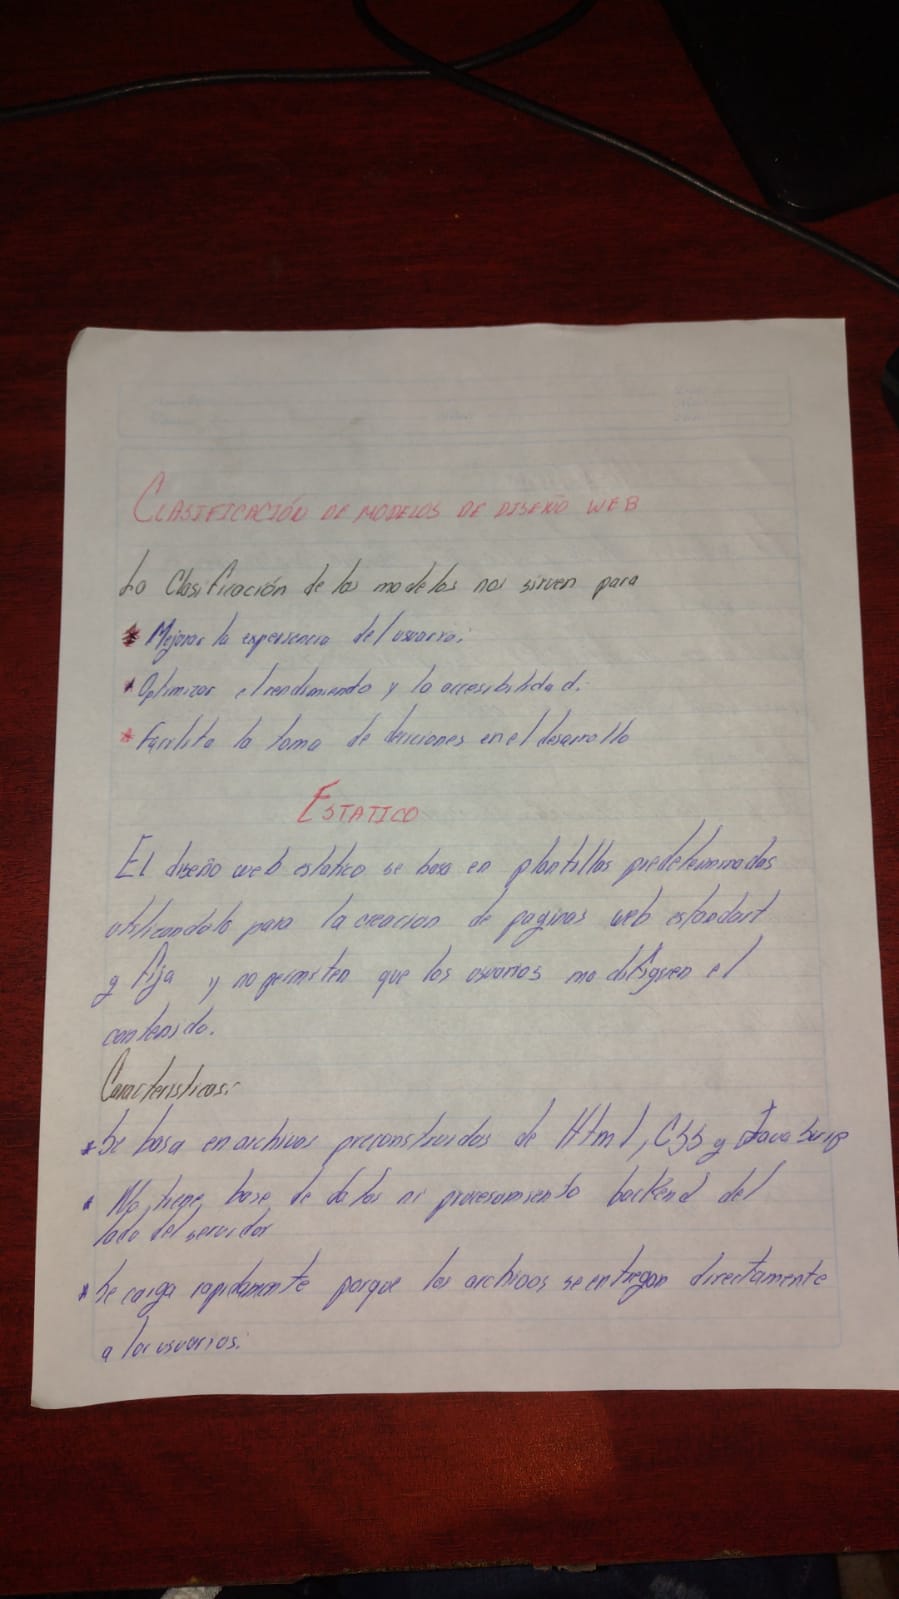 CLASIFICACIÓN DE MODELOS DE DISEÑO WEB
La Clasificación de los modelos nos sirven para
* Mejorar la experiencia del usuario.
* Optimizar el rendimiento y la accesibilidad.
* Facilita la toma de deciciones en el desarrollo
ESTATICO
El diseño web estatico se basa en plantillas predeterminadas
utilizandolo para la creacion de paginas web estandart
y fija y no permiten que los usuarios modifiquen el
contenido.
Caracteristicas:
* Se basa en archivos preconstruidos de Html, CSS y Java Scrip
* No tiene base de datos ni procesamiento backend del
lado del servidor
* Se carga rapidamente porque los archivos se entregan directamente
a los usuarios.